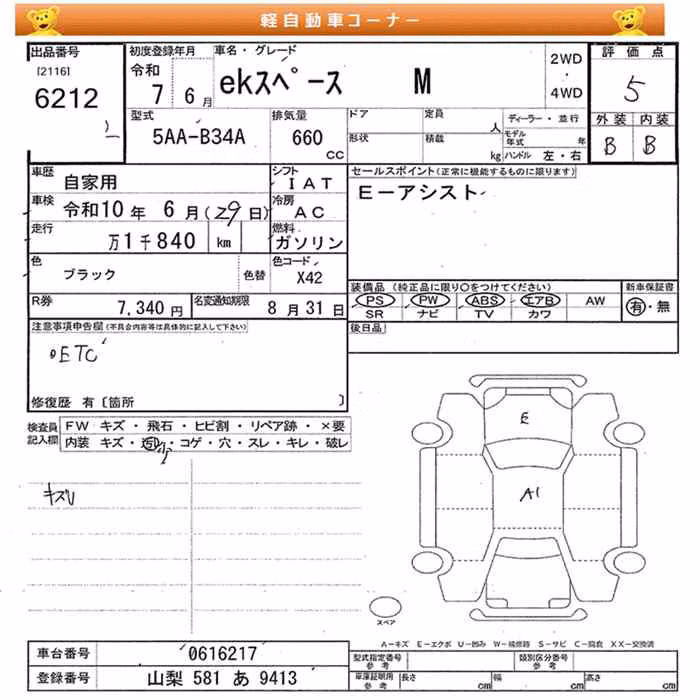 軽自動車コーナー
出品番号
[2116]
6212
初度登録年月
令和
7 6月
車名・グレード
ekスペース M
2WD
・
4WD
評価点
5
外装 内装
B B
型式
5AA-B34A
排気量
660
CC
ドア
形状
定員
人
積載
kg
ディーラー・並行
モデル年式 年
ハンドル 左・右
車歴
自家用
シフト
IAT
車検
令和10年 6月(29日)
冷房
AC
走行
万1千840 km
燃料
ガソリン
色
ブラック
色替
色コード
X42
R券
7,340円
名変通知期限
8月31日
セールスポイント(正常に機能するものに限ります)
E-アシスト
装備品(純正品に限り○をつけてください)
PS PW ABS エアB AW
SR ナビ TV カワ
新車保証書
有・無
後日品
注意事項申告欄(不具合内容等は具体的に記入して下さい)
ETC
修復歴 有〔箇所 〕
検査員
記入欄
FW キズ・飛石・ヒビ割・リペア跡・×要
内装 キズ・汚れ・コゲ・穴・スレ・キレ・破レ
E
A1
スペア
A-キズ E-エクボ U-凹み W-補修跡 S-サビ C-腐食 XX-交換済
車台番号
0616217
登録番号
山梨 581 あ 9413
型式指定番号
参考
類別区分番号
参考
車庫証明用
参考
長さ cm
幅 cm
高さ cm